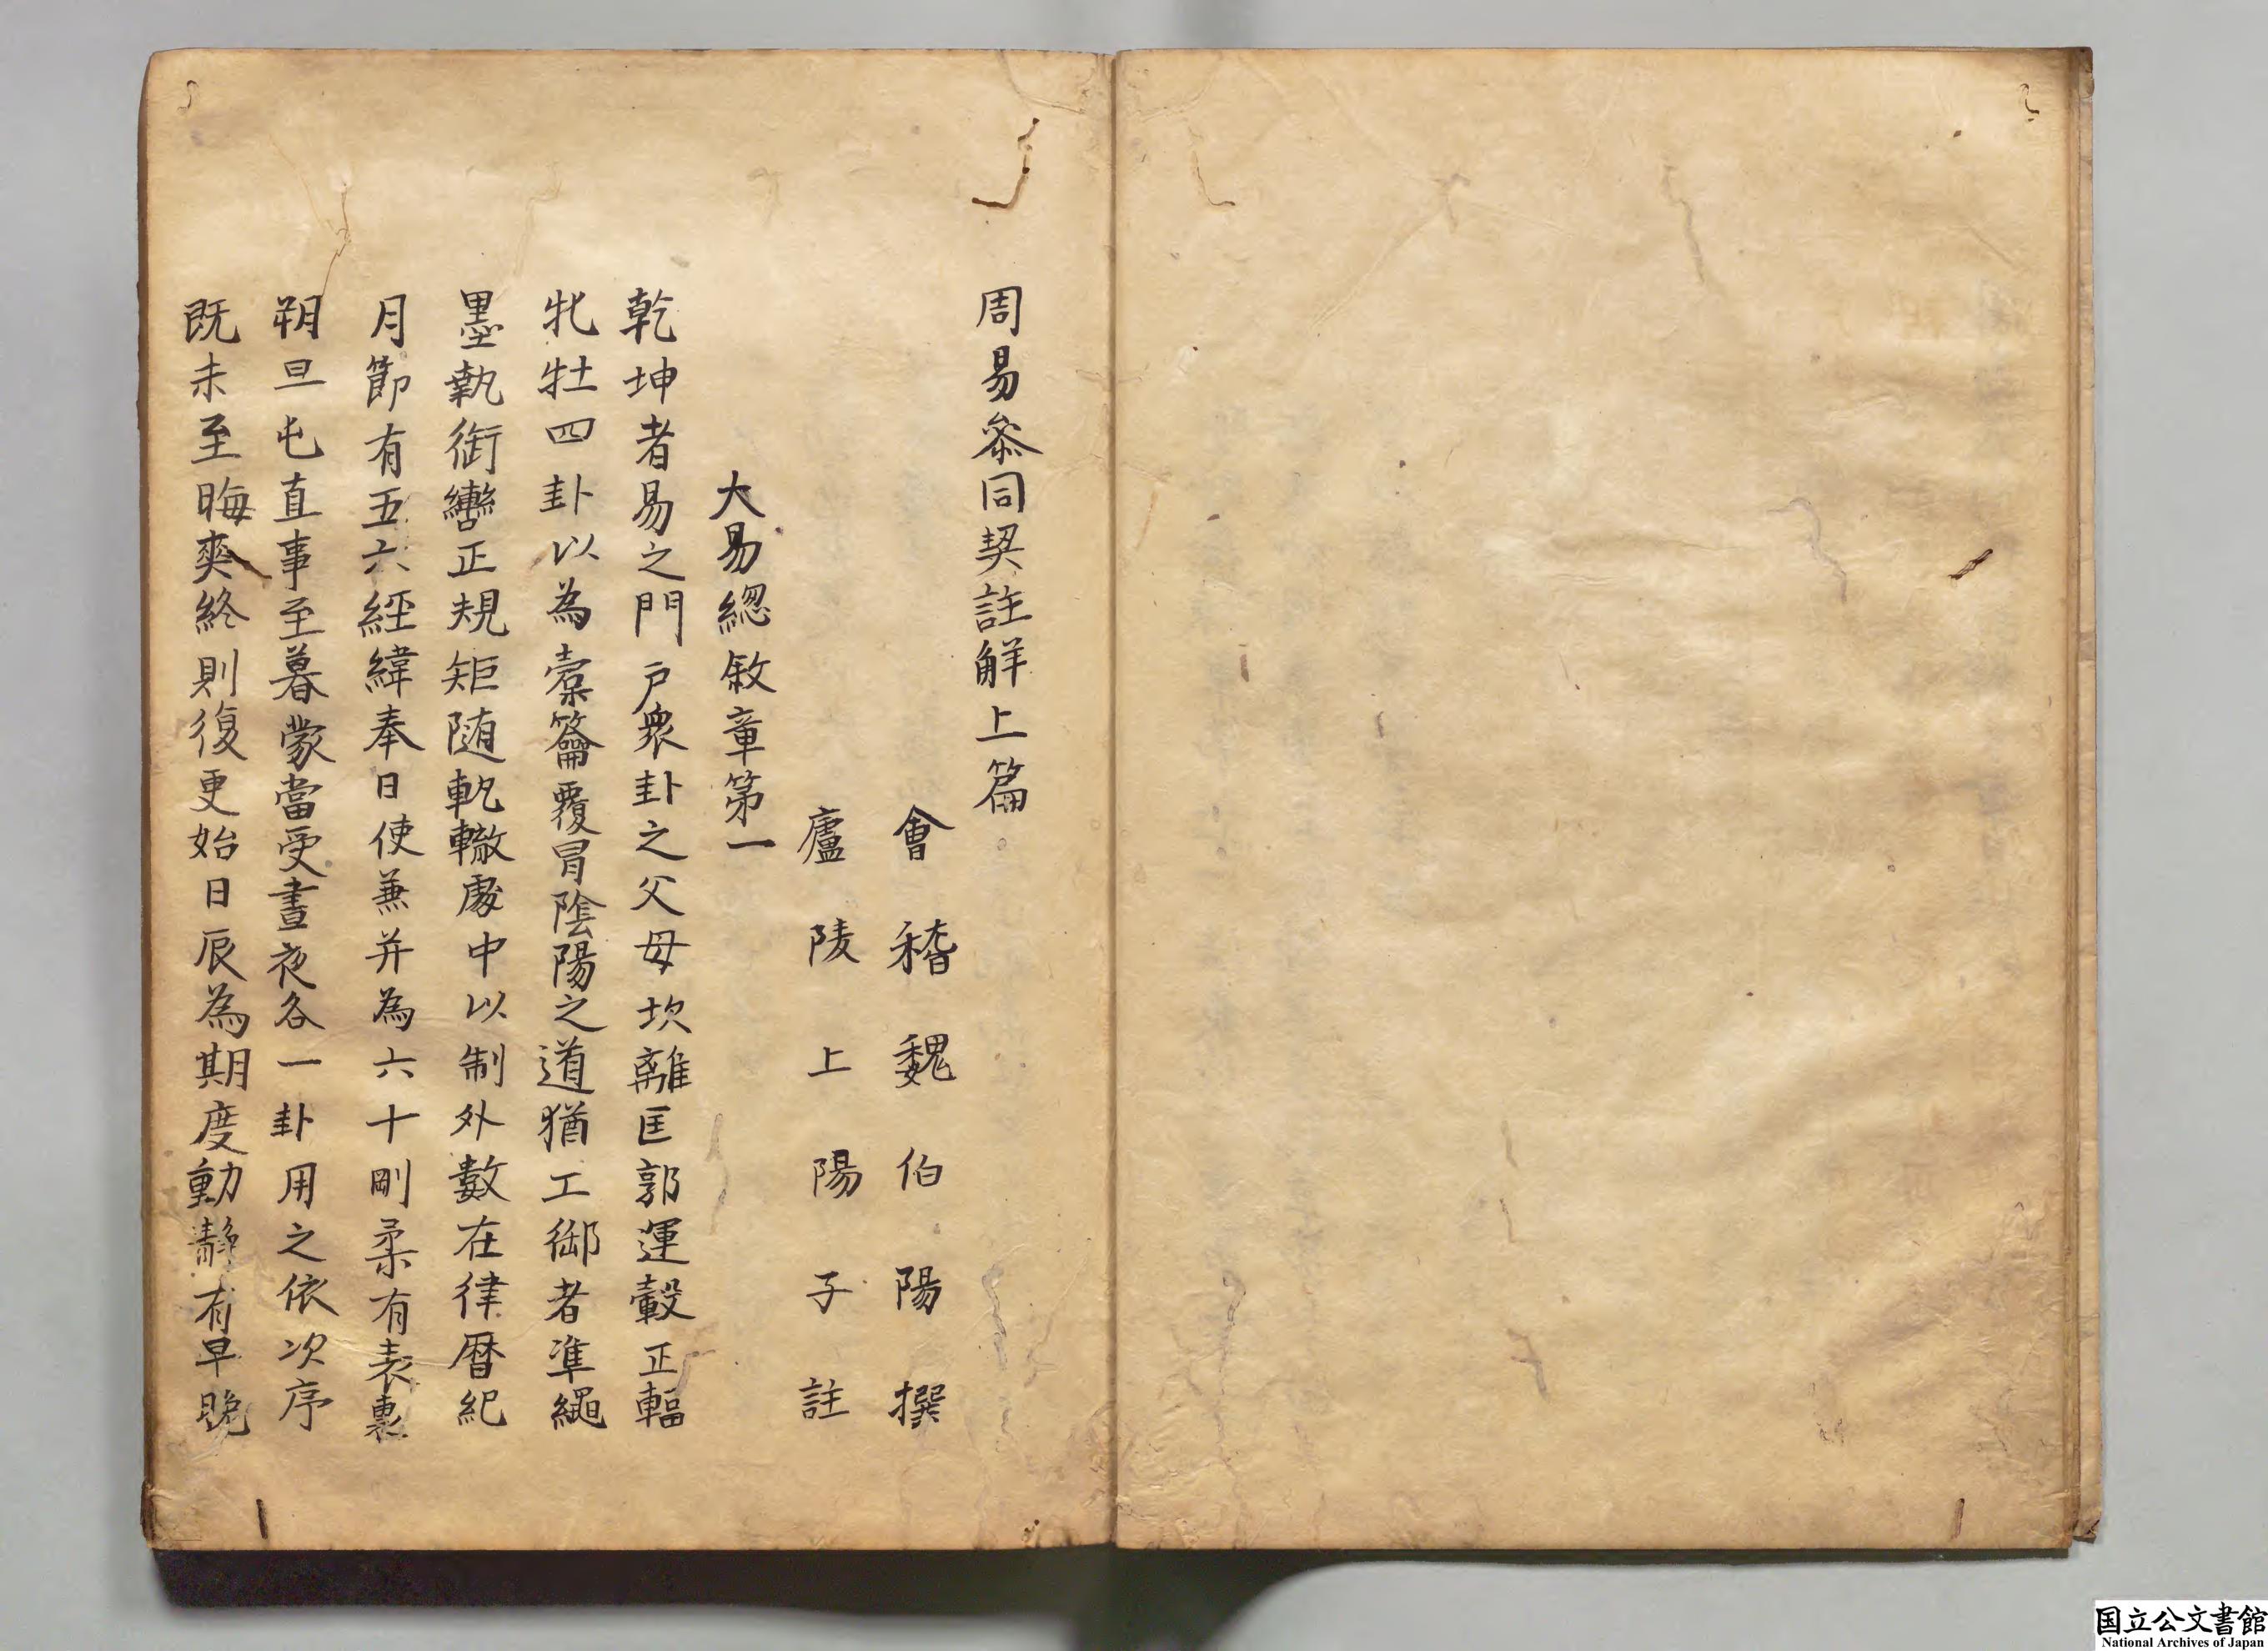 周易叅同契註解上篇
會稽魏伯陽撰
廬陵上陽子註
大易緫敘章第一
乾坤者易之門戶衆卦之父母坎離匡郭運轂正輻
牝牡四卦以為槖籥覆冒陰陽之道猶工御者凖繩
墨執銜轡正規矩随軌轍處中以制外數在律暦紀
月節有五六經緯奉日使兼并為六十剛柔有表裏
朔旦屯直事至暮蒙當受晝夜各一卦用之依次序
既未至晦爽終則復更始日辰為期度動静有早晚
国立公文書館
National Archives of Japan